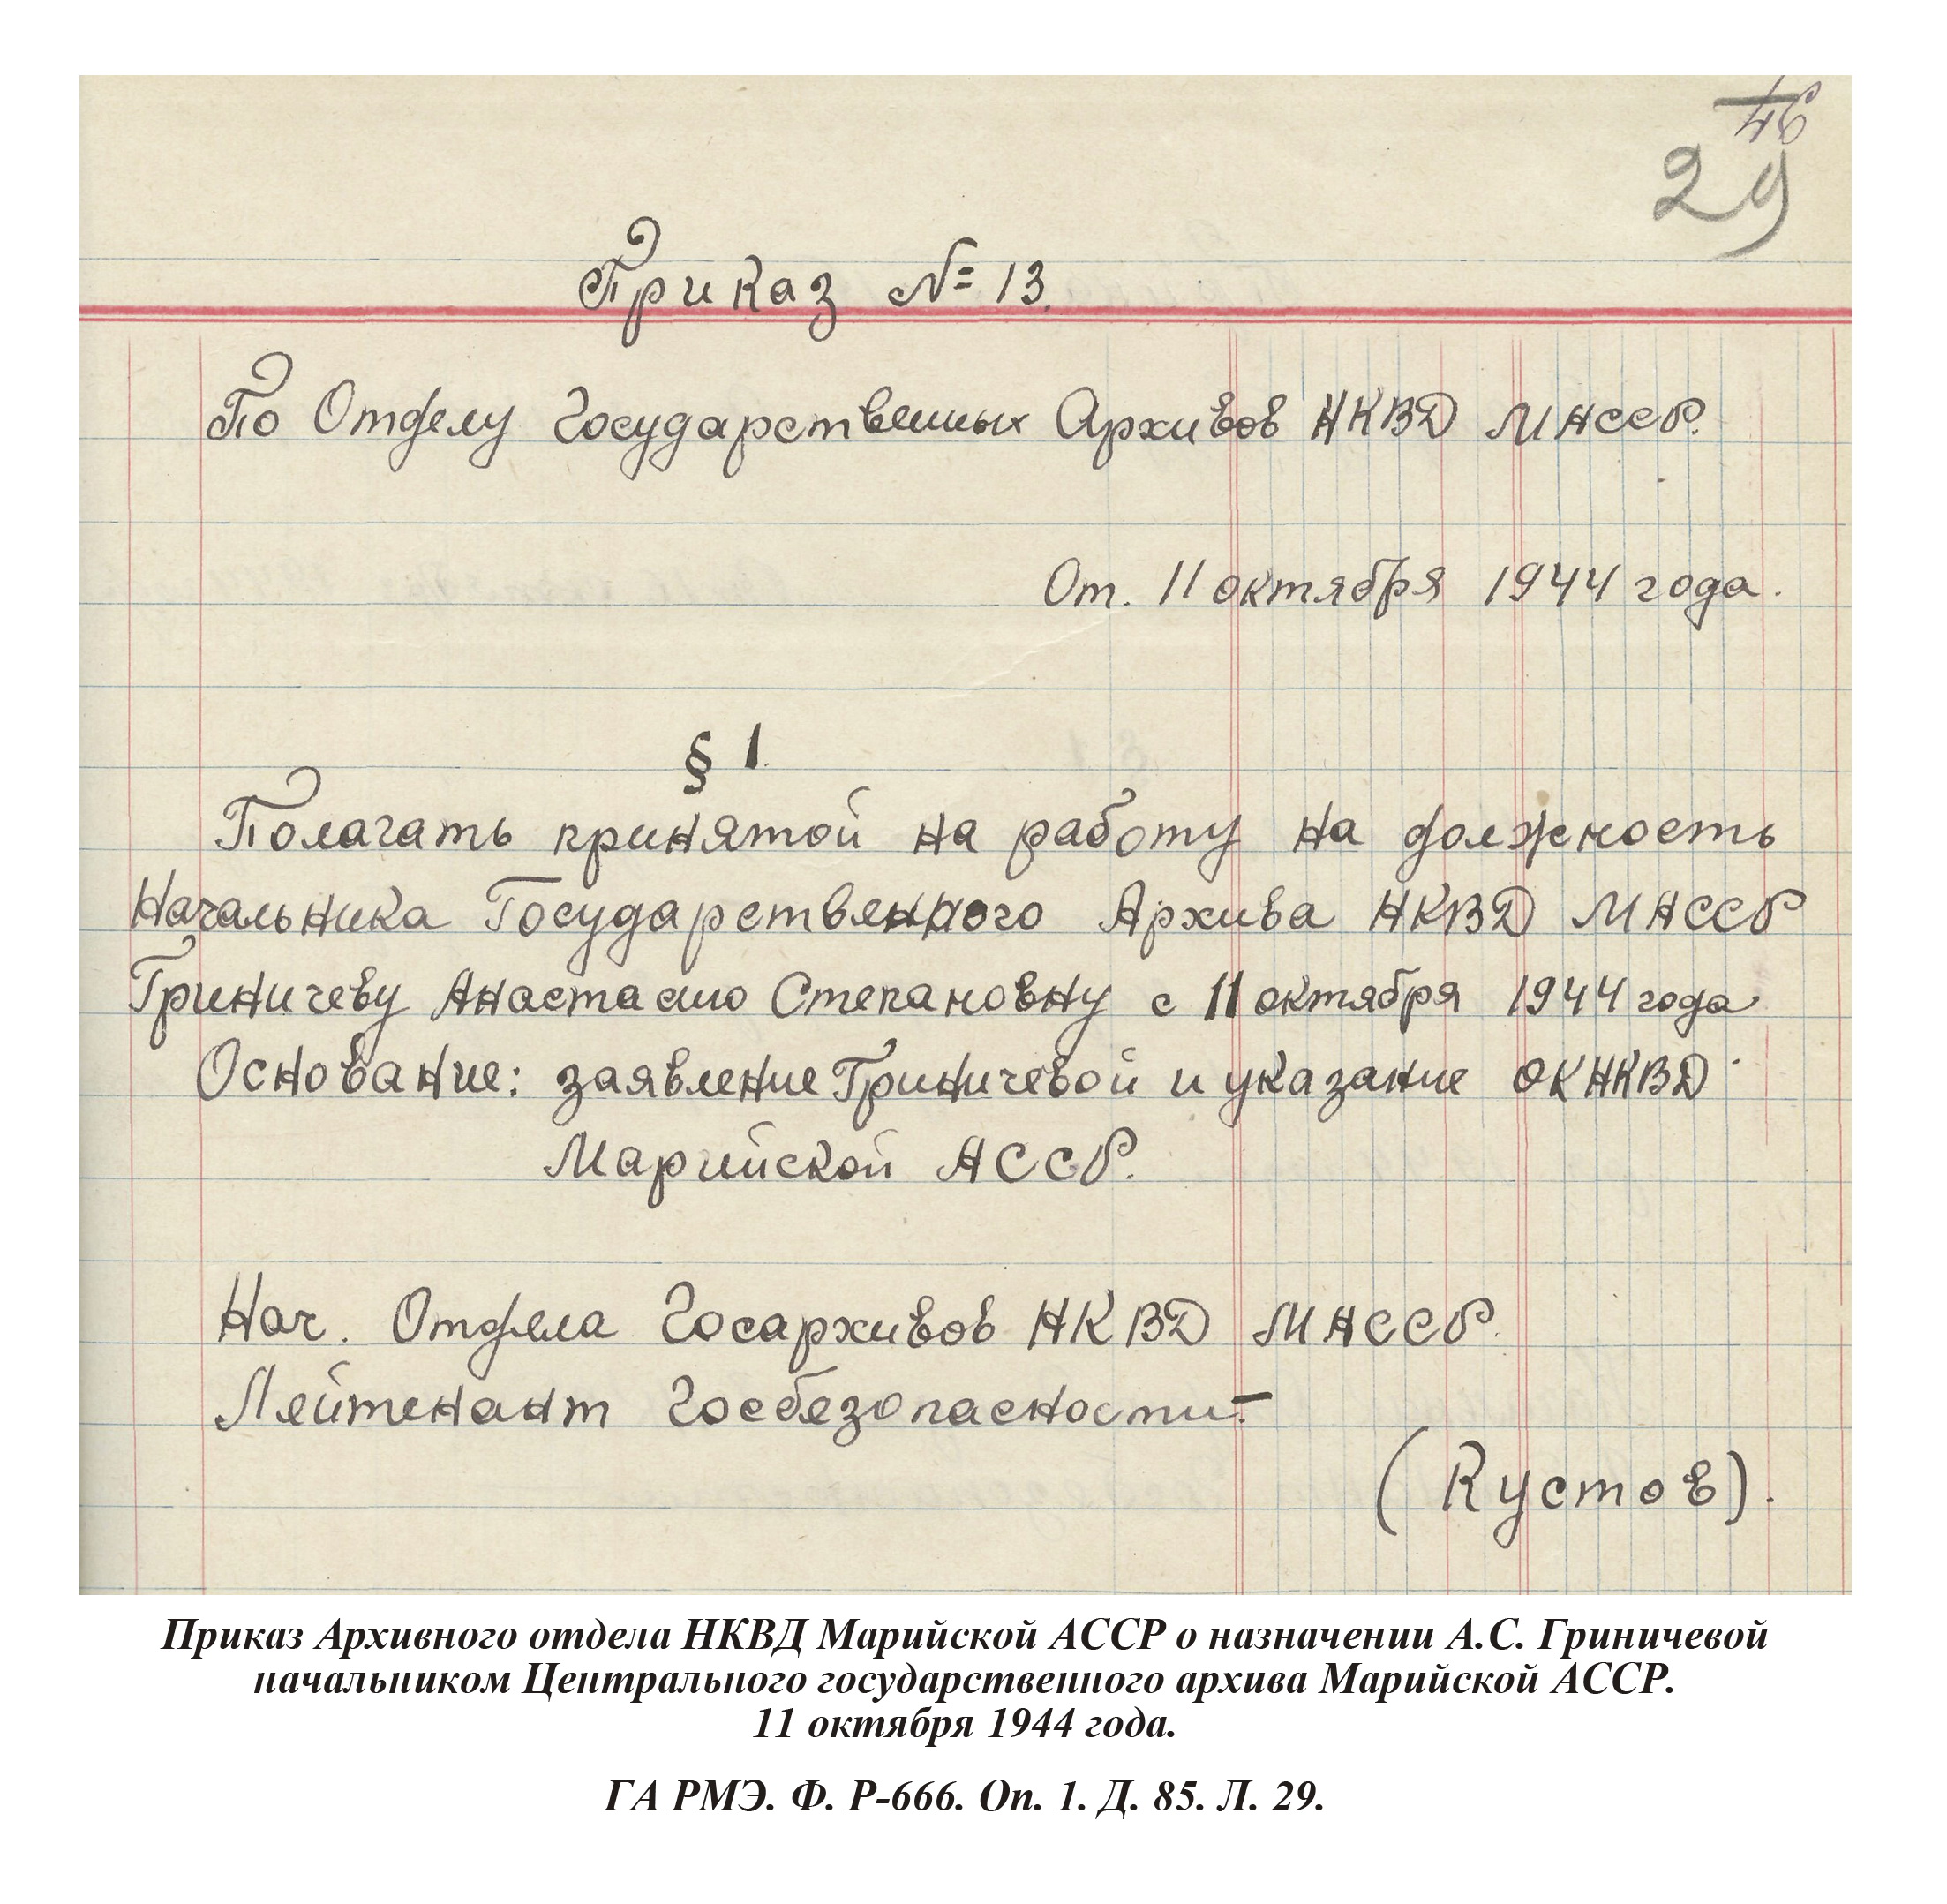 46
29
Приказ № 13.
По Отделу Государственных Архивов НКВД МАССР.
От. 11 октября 1944 года.
§ 1.
Полагать принятой на работу на должность
Начальника Государственного Архива НКВД МАССР
Гриничеву Анастасию Степановну с 11 октября 1944 года
Основание: заявление Гриничевой и указание ОКНКВД
Марийской АССР.
Нач. Отдела Госархивов НКВД МАССР.
Лейтенант Госбезопасности:
(Кустов).
Приказ Архивного отдела НКВД Марийской АССР о назначении А.С. Гриничевой
начальником Центрального государственного архива Марийской АССР.
11 октября 1944 года.
ГА РМЭ. Ф. Р-666. Оп. 1. Д. 85. Л. 29.